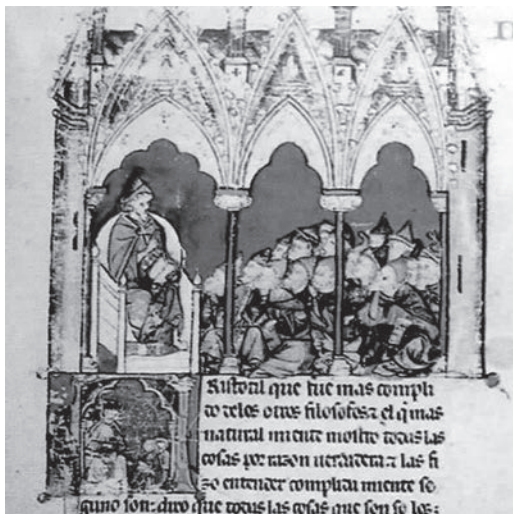 Ristotil que fue mas compli
do delos otros filosofos ⁊ el q mas
natural miente mostro todas las
cosas por razon uerdadera ⁊ las fi
zo entender complida miente se
gund son. dixo que todas las cosas que son so los: